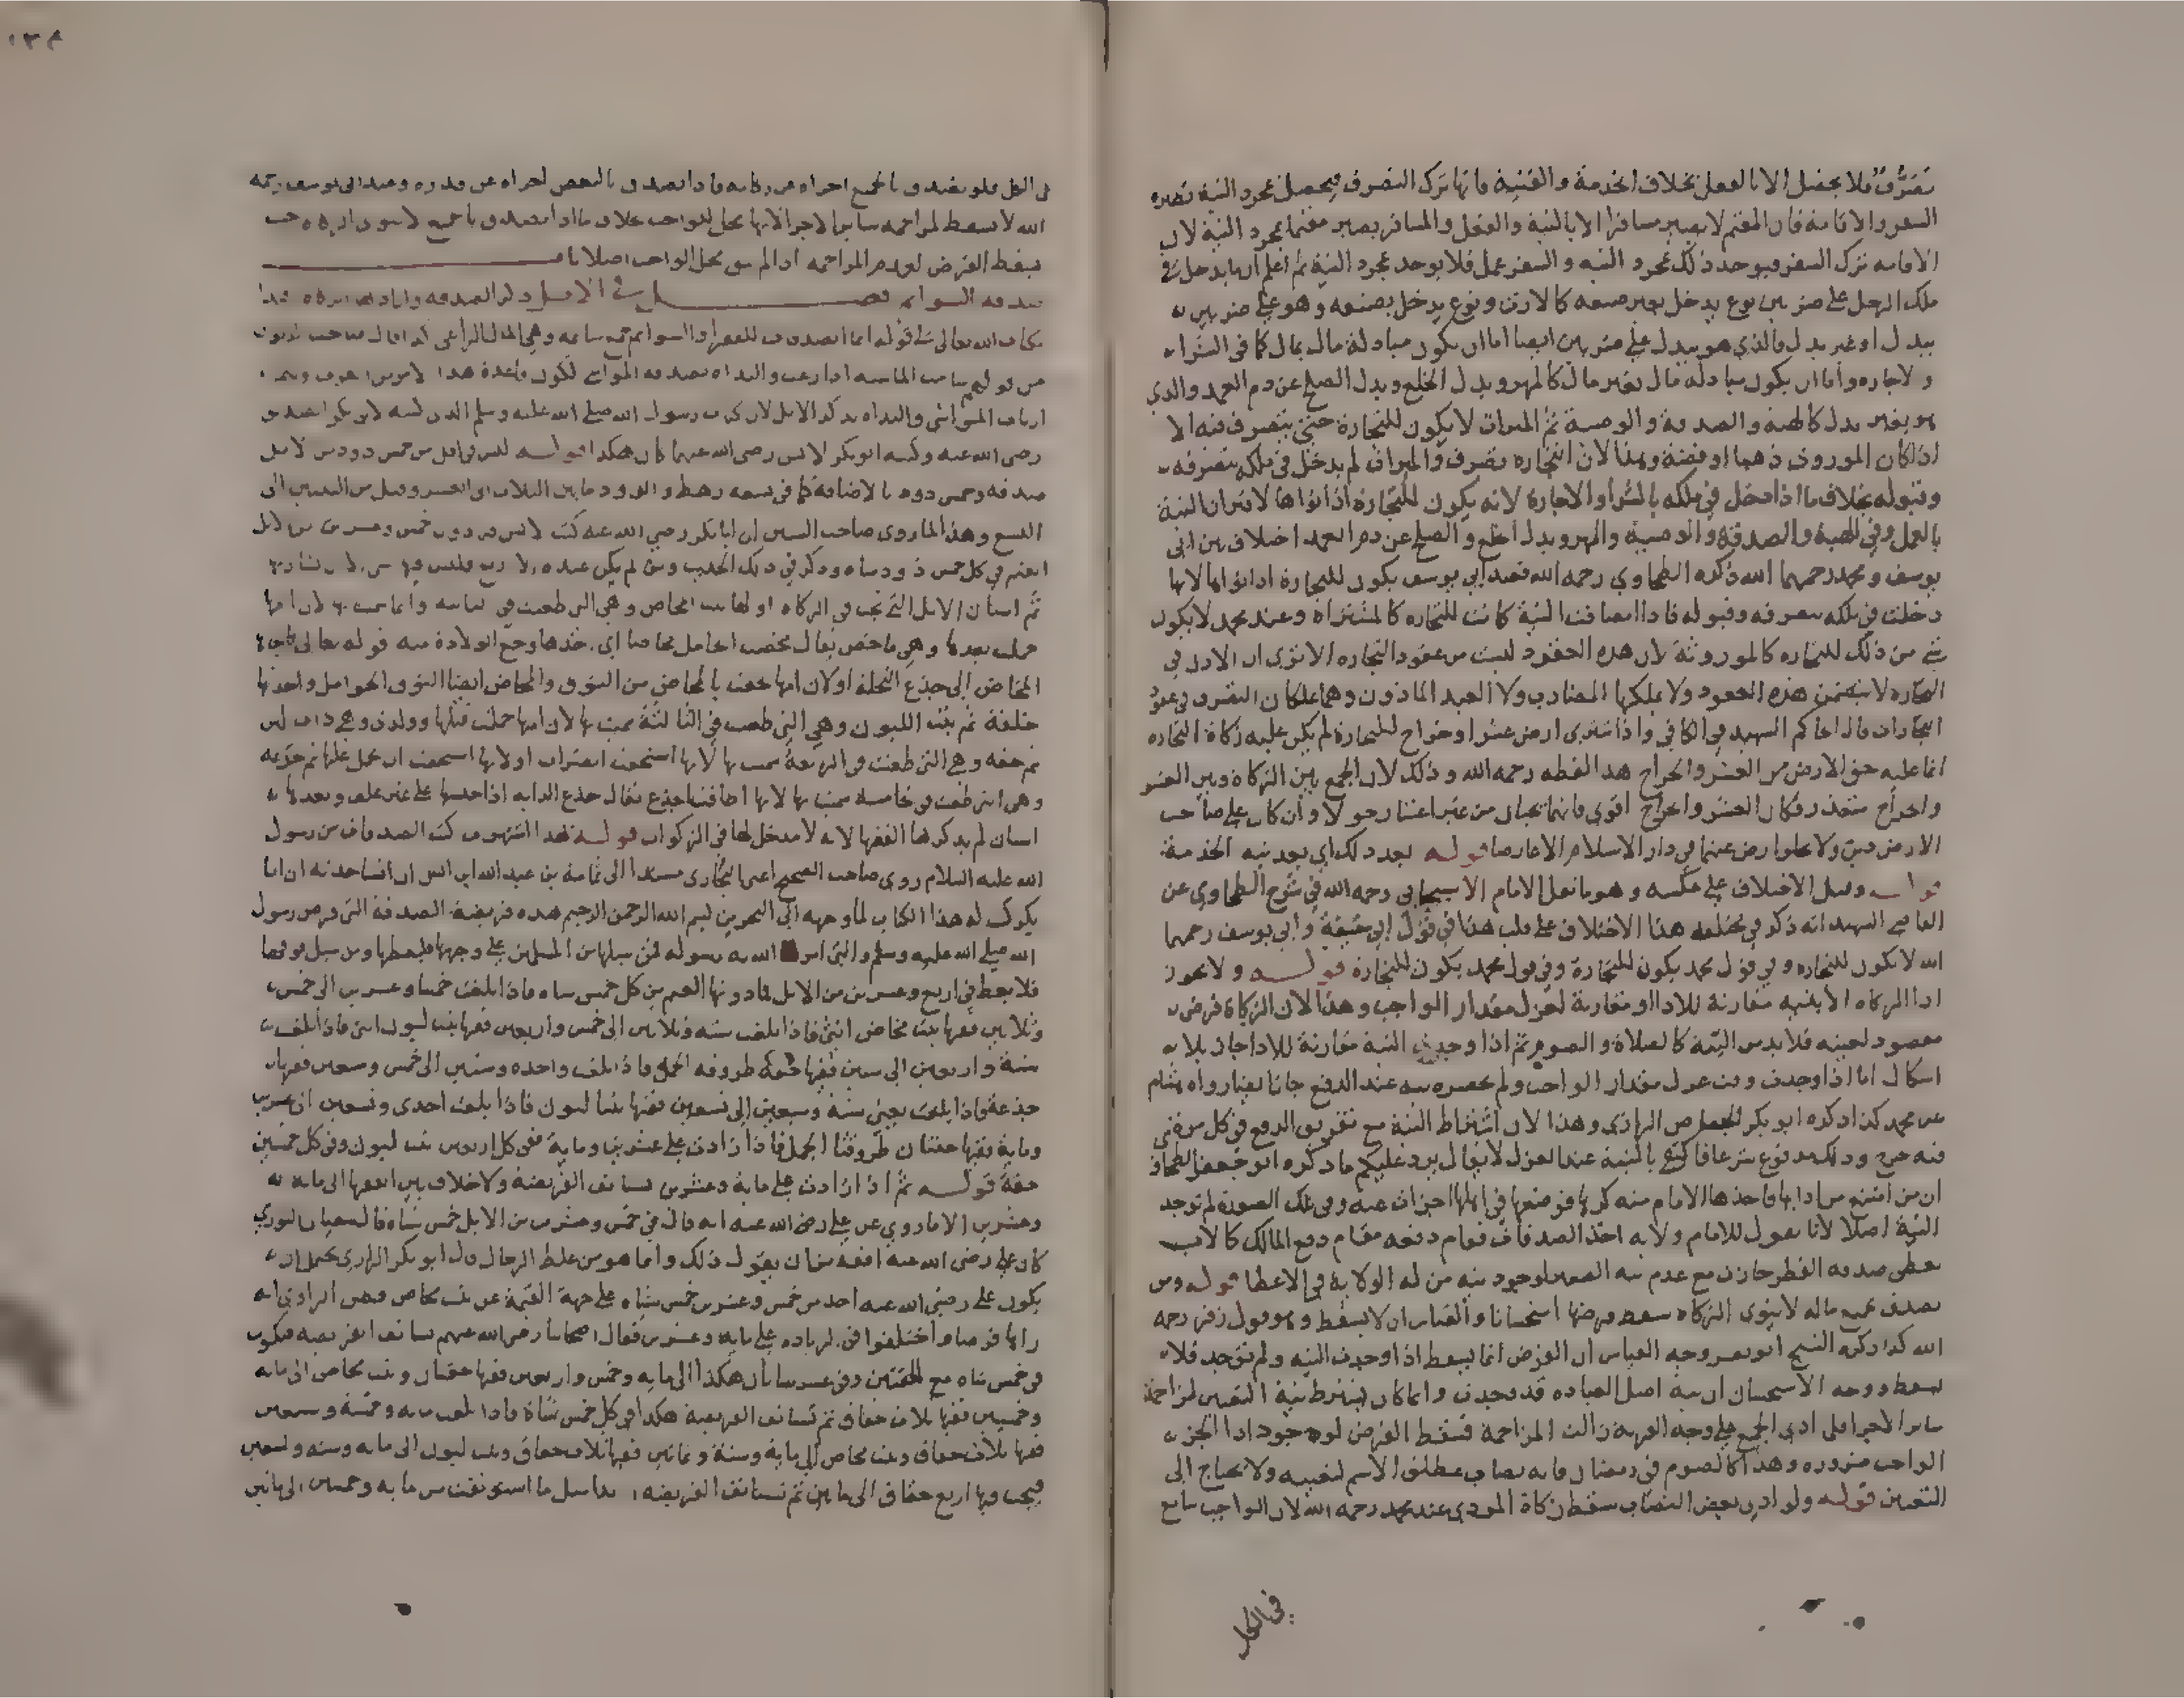 تصرف فلا يحصل الا بالفعل بخلاف الخدمة والقنية فانها ترك التصرف فيحصل بمجرد النية نظيره
السفر والاقامة فان المقيم لا يصير مسافرا الا بالنية والفعل والمسافر يصير مقيما بمجرد النية لان
الاقامة ترك السفر فيوجد ذلك بمجرد النية والسفر عمل فلا يوجد بمجرد النية ثم اعلم ان ما يدخل في
ملك الرجل على ضربين نوع يدخل بغير صنعه كالارث ونوع يدخل بصنعه وهو على ضربين
ببدل او غير بدل فالذي هو ببدل على ضربين ايضا اما ان يكون مبادلة مال بمال كما في الشراء
والاجارة واما ان يكون مبادلة مال بغير مال كالمهر وبدل الخلع وبدل الصلح عن دم العمد والذي
هو بغير بدل كالهبة والصدقة والوصية ثم الميراث لا يكون للتجارة حتى يتصرف فيه الا
اذا كان الموروث ذهبا او فضة وهذا لان التجارة تصرف والميراث لم يدخل في ملكه بتصرفه
وقبوله بخلاف ما اذا دخل في ملكه بالشراء والاجارة لانه يكون للتجارة اذا نواها لاقتران النية
بالعمل وفي الهبة والصدقة والوصية والمهر وبدل الخلع والصلح عن دم العمد اختلاف بين ابي
يوسف ومحمد رحمهما الله ذكره الطحاوي رحمه الله فعند ابي يوسف يكون للتجارة اذا نواها لانها
دخلت في ملكه بتصرفه وقبوله فاذا انضافت النية كانت للتجارة كالمشتراة وعند محمد لا يكون
شئ من ذلك للتجارة كالموروثة لان هذه العقود ليست من عقود التجارة الا ترى ان الاذن في
التجارة لا يتضمن هذه العقود ولا يملكها المضارب ولا العبد الماذون وهما يملكان التصرف في عقود
التجارات قال الحاكم الشهيد في الكافي واذا اشترى ارض عشر او خراج للتجارة لم يكن عليه زكاة التجارة
انما عليه حق الارض من العشر والخراج هذا لفظه رحمه الله وذلك لان الجمع بين الزكاة وبين العشر
والخراج متعذر فكان العشر والخراج اقوى فانهما يجبان من غير اعتبار حول وان كان على صاحب
الارض دين ولا تخلوا ارض عنهما في دار الاسلام الا عارضا قوله بعد ذلك اي بعد نية الخدمة
قوله وقيل الاختلاف على عكسه وهو ما نقل الامام الاسبيجابي رحمه الله في شرح الطحاوي عن
القاضي الشهيد انه ذكر في مختلفه هذا الاختلاف على قلب هذا في قول ابي حنيفة وابي يوسف رحمهما
الله لا يكون للتجارة وفي قول محمد يكون للتجارة قوله ولا يجوز
اداء الزكاة الا بنية مقارنة للاداء او مقارنة لعزل مقدار الواجب وهذا لان الزكاة فرض
مقصود لعينه فلا بد من النية كالصلاة والصوم ثم اذا وجدت النية مقارنة للاداء جاز بلا
اشكال اما اذا وجدت وقت عزل مقدار الواجب ولم تحضره نية عند الدفع جاز ايضا رواه هشام
عن محمد كذا ذكره ابو بكر الجصاص الرازي وهذا لان اشتراط النية مع تفريق الدفع في كل مرة
فيه حرج وذلك مدفوع شرعا فاكتفي بالنية عند العزل لا يقال يرد عليكم ما ذكره ابو جعفر الطحاوي
ان من امتنع من ادائها فاخذها الامام منه كرها فوضعها في اهلها اجزات عنه وفي تلك الصورة لم توجد
النية اصلا لانا نقول للامام ولاية اخذ الصدقات فقام دفعه مقام دفع المالك كالاب
يعطي صدقة الفطر جاز مع عدم نية الصغير لوجود نية من له الولاية في الاعطاء قوله ومن
تصدق بجميع ماله لا ينوي الزكاة سقط فرضها استحسانا والقياس ان لا يسقط وهو قول زفر رحمه
الله كذا ذكره الشيخ ابو نصر وجه القياس ان الفرض انما يسقط اذا وجدت النية ولم توجد فلا
يسقط ووجه الاستحسان ان نية اصل العبادة قد وجدت وانما كان يشترط نية التعيين لمزاحمة
سائر الاجزاء فلما ادى الجميع على وجه القربة زالت المزاحمة فسقط الفرض لوجود اداء الجزء
الواجب ضرورة وهذا كالصوم في رمضان فانه يصاب بمطلق الاسم لتعينه ولا يحتاج الى
التعيين قوله ولو ادى بعض النصاب سقط زكاة المودى عند محمد رحمه الله لان الواجب شائع
في الكل
١٣٤
في الكل فلو تصدق بالجميع اجزاه عن زكاته فاذا تصدق بالبعض اجزاه عن قدره وعند ابي يوسف رحمه
الله لا يسقط لمزاحمة سائر الاجزاء لانها محل للواجب بخلاف ما اذا تصدق بالجميع لا ينوي الزكاة حيث
يسقط الفرض لعدم المزاحمة اذ لم يبق محل الواجب اصلا
صدقة السوائم فصل في الابل
بكتاب الله تعالى في قوله انما الصدقات للفقراء والسوائم جمع سائمة وهي المال الراعي
من قولهم سامت الماشية اذا رعت والبداة بصدقة المواشي لكون قاعدة هذا الامر من العرب وهم
ارباب المواشي والبداة بذكر الابل لان كتاب رسول الله صلى الله عليه وسلم الذي كتبه لابي بكر الصديق
رضي الله عنه وكتبه ابو بكر لانس رضي الله عنهما كان هكذا قوله ليس في اقل من خمس ذود من الابل
صدقة وخمس ذود بالاضافة كما في تسعة رهط والذود ما بين الثلاث الى العشر وقيل من الثنتين الى
التسع وهذا لما روى صاحب السنن ان ابا بكر رضي الله عنه كتب لانس فيما دون خمس وعشرين من الابل
الغنم في كل خمس ذود شاة وذكر في ذلك الحديث ومن لم يكن عنده الا اربع فليس فيها شئ الا ان يشاء ربها
ثم اسنان الابل التي تجب في الزكاة اولها بنت المخاض وهي التي طعنت في الثانية وانما سميت بها لان امها
حملت بعدها وهي ماخض يقال مخضت الحامل مخاضا اي اخذها وجع الولادة منه قوله تعالى فاجاءها
المخاض الى جذع النخلة او لان امها لحقت بالمخاض من النوق والمخاض ايضا النوق الحوامل واحدتها
خلفة ثم بنت اللبون وهي التي طعنت في الثالثة سميت بها لان امها حملت قبلها وولدت وهي ذات لبن
ثم حقة وهي التي طعنت في الرابعة سميت بها لانها استحقت الضراب او لانها استحقت ان يحمل عليها ثم جذعة
وهي التي طعنت في خامسة سميت بها لانها اطاقت الجذع يقال جذع الدابة اذا حبسها على غير علف وبعدها
اسنان لم يذكرها الفقهاء لانه لا مدخل لها في الزكوات قوله بهذا اشتهرت كتب الصدقات من رسول
الله عليه السلام روى صاحب الصحيح اعني البخاري مسندا الى ثمامة بن عبد الله ابن انس ان انسا حدثه ان ابا
بكر كتب له هذا الكتاب لما وجهه الى البحرين بسم الله الرحمن الرحيم هذه فريضة الصدقة التي فرض رسول
الله صلى الله عليه وسلم والتي امر الله به رسوله فمن سئلها من المسلمين على وجهها فليعطها ومن سئل فوقها
فلا يعط في اربع وعشرين من الابل فما دونها الغنم من كل خمس شاة فاذا بلغت خمسا وعشرين الى خمس
وثلاثين ففيها بنت مخاض انثى فاذا بلغت ستة وثلاثين الى خمس واربعين ففيها بنت لبون انثى فاذا بلغت
ستة واربعين الى ستين ففيها حقة طروقة الجمل فاذا بلغت واحدة وستين الى خمس وسبعين ففيها
جذعة فاذا بلغت يعني ستة وسبعين الى تسعين ففيها بنتا لبون فاذا بلغت احدى وتسعين الى عشرين
ومائة ففيها حقتان طروقتا الجمل فاذا زادت على عشرين وماية ففي كل اربعين بنت لبون وفي كل خمسين
حقة قوله ثم اذا زادت على ماية وعشرين تستانف الفريضة ولا خلاف بين الفقهاء الى ماية
وعشرين الا ما روي عن علي رضي الله عنه انه قال في خمس وعشرين من الابل خمس شياه قال سفيان الثوري
كان علي رضي الله عنه افقه من ان يقول ذلك وانما هو من غلط الرجال قال ابو بكر الرازي يحتمل ان
يكون علي رضي الله عنه اخذ من خمس وعشرين خمس شياه على جهة القيمة عن بنت مخاض فظن الراوي انه
راها فرضا واختلفوا في الزيادة على مايه وعشرين فقال اصحابنا رضي الله عنهم تستانف الفريضة فيكون
في خمس شاة مع الحقتين وفي عشر شاتان هكذا الى مايه وخمس واربعين ففيها حقتان وبنت مخاض الى مايه
وخمسين ففيها ثلاث حقاق ثم تستانف الفريضة هكذا في كل خمس شاة فاذا بلغت مايه وخمسة وسبعين
ففيها ثلاث حقاق وبنت مخاض الى ماية وستة وثمانين ففيها ثلاث حقاق وبنت لبون الى مايه وستة وتسعين
فيجب فيها اربع حقاق الى مايتين ثم تستانف الفريضة ابدا مثل ما استونفت من مايه وخمسين الى مايتين